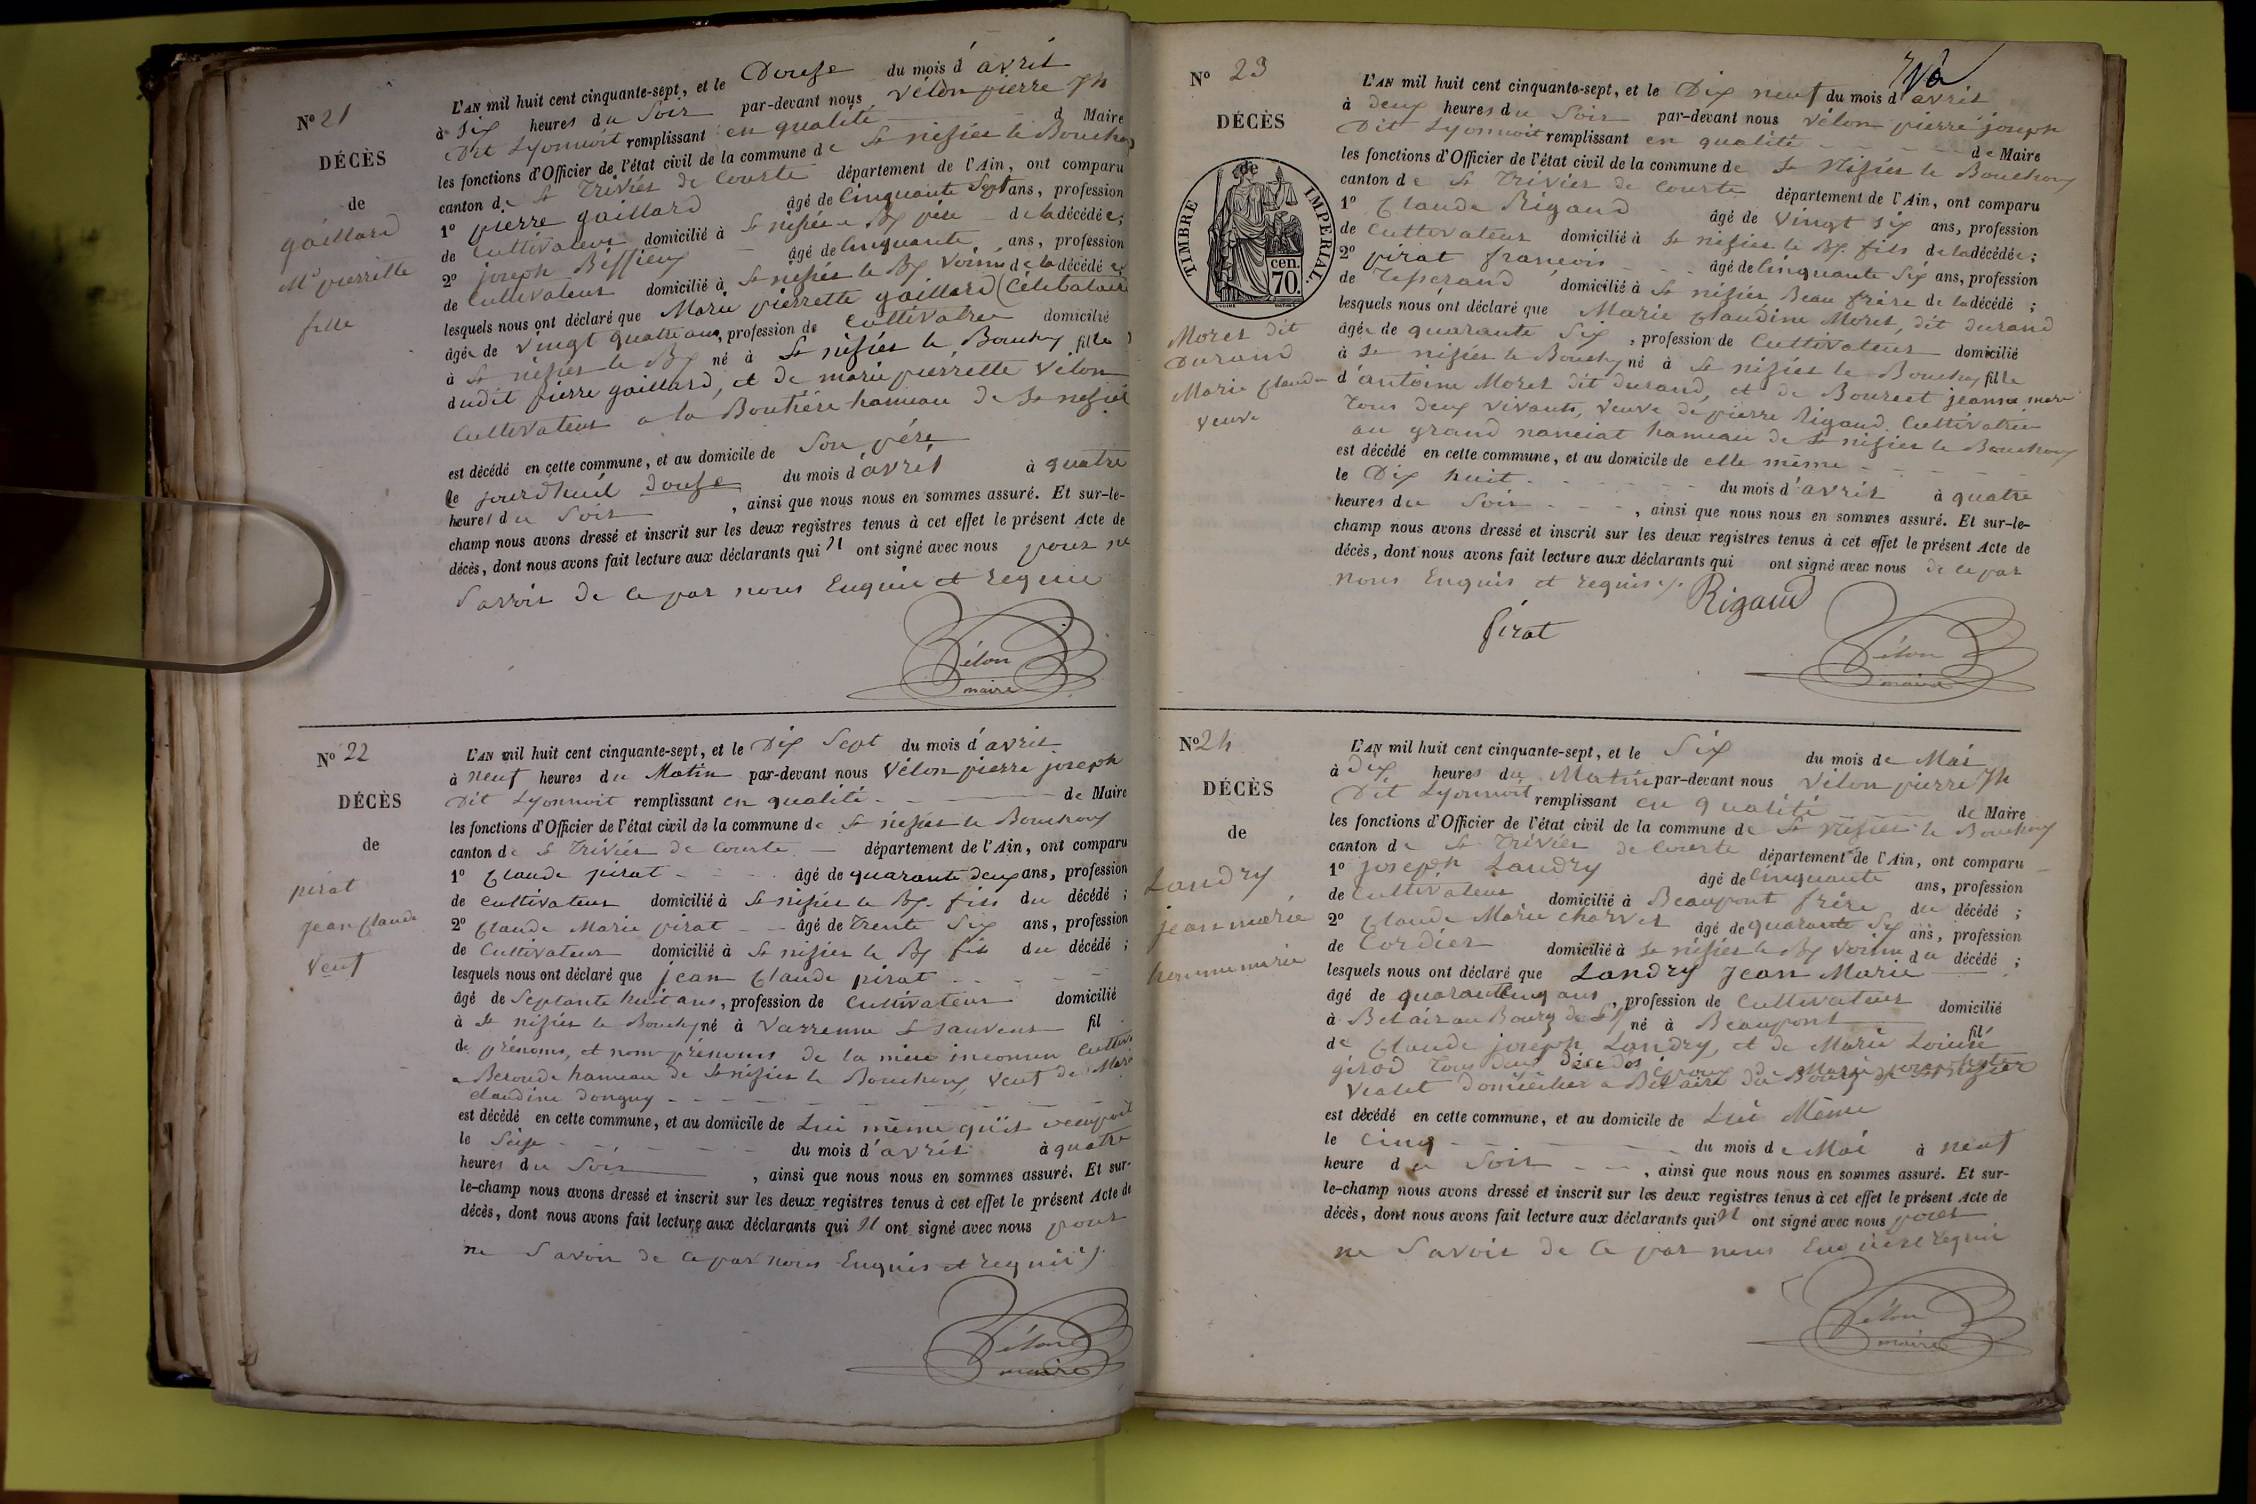 N° 21
DÉCÈS
de
gaillard
Mie pierrette
fille
L'AN mil huit cent cinquante-sept, et le Douze du mois d'avril
à Six heures du Soir par-devant nous Vélon pierre Jh
Dit Lyonnoit remplissant en qualité d Maire
les fonctions d'Officier de l'état civil de la commune de St nisier le Bouchoux
canton de St Trivier de Courte département de l'Ain, ont comparu
1° pierre gaillard âgé de Cinquante Sept ans, profession
de Cultivateur domicilié à St nisier le Bx père de la décédée;
2° joseph Beffieux âgé de Cinquante ans, profession
de Cultivateur domicilié à St nisier le Bx Voisin de la décédée;
lesquels nous ont déclaré que Marie pierrette gaillard (Célibataire
âgée de Vingt quatre ans, profession de Cultivatrice domicilié
à St nisier le Bx né à St nisier le Bouchoux fille
dudit pierre gaillard, et de marie pierrette Vélon
Cultivateur a la Boutière hameau de St nisier
est décédé en cette commune, et au domicile de Son père
le jourdhuil douze du mois d'avril à quatre
heures du Soir, ainsi que nous nous en sommes assuré. Et sur-le-
champ nous avons dressé et inscrit sur les deux registres tenus à cet effet le présent Acte de
décès, dont nous avons fait lecture aux déclarants qui n ont signé avec nous pour ne
Savoir de ce par nous Enquis et requis
Vélon
maire
N° 22
DÉCÈS
de
pirat
jean Claude
Veuf
L'AN mil huit cent cinquante-sept, et le Dix Sept du mois d'avril
à neuf heures du Matin par-devant nous Vélon pierre joseph
Dit Lyonnoit remplissant en qualité de Maire
les fonctions d'Officier de l'état civil de la commune de St nisier le Bouchoux
canton de St Trivier de Courte département de l'Ain, ont comparu
1° Claude pirat âgé de quarante deux ans, profession
de Cultivateur domicilié à St nisier le Bx fils du décédé;
2° Claude Marie pirat âgé de Trente Six ans, profession
de Cultivateur domicilié à St nisier le Bx fils du décédé;
lesquels nous ont déclaré que jean Claude pirat
âgé de Septante huit ans, profession de Cultivateur domicilié
à St nisier le Bouchx né à Varrenne St Sauveur fil
de prénoms, et nom prénoms de la mère inconnu Cultiv
a Beroude hameau de St nisier le Bouchoux, Veuf de Marie
claudine donguy
est décédé en cette commune, et au domicile de Lui même qu'il occupait
le Seize du mois d'avril à quatre
heures du Soir, ainsi que nous nous en sommes assuré. Et sur-
le-champ nous avons dressé et inscrit sur les deux registres tenus à cet effet le présent Acte de
décès, dont nous avons fait lecture aux déclarants qui n ont signé avec nous pour
ne Savoir de ce par nous Enquis et requis
Vélon
maire
N° 23
DÉCÈS
de
TIMBRE IMPERIAL.
70. cen.
Moret dit
Durand
Marie Claudine
veuve
L'AN mil huit cent cinquante-sept, et le Dix neuf du mois d'avril
à deux heures du Soir par-devant nous Vélon pierre joseph
Dit Lyonnoit remplissant en qualité de Maire
les fonctions d'Officier de l'état civil de la commune de St Nisier le Bouchoux
canton de St Trivier de Courte département de l'Ain, ont comparu
1° Claude Rigaud âgé de Vingt Six ans, profession
de Cultivateur domicilié à St nisier le Bx. fils de la décédée;
2° pirat francois âgé de Cinquante Six ans, profession
de Tisserand domicilié à St nisier Beau frère de la décédé;
lesquels nous ont déclaré que Marie Claudine Moret, dit durand
âgée de quarante Six, profession de Cultivateur domicilié
à St nisier le Bouchx né à St nisier le Bouchoux fille
d'antoine Moret dit durand, et de Bourcet jeanne marie
Tous deux Vivants, Veuve de pierre Rigaud Cultivatrice
au grand nanciat hameau de St nisier le Bouchoux
est décédé en cette commune, et au domicile de elle même
le Dix huit du mois d'avril à quatre
heures du Soir, ainsi que nous nous en sommes assuré. Et sur-le-
champ nous avons dressé et inscrit sur les deux registres tenus à cet effet le présent Acte de
décès, dont nous avons fait lecture aux déclarants qui ont signé avec nous de ce par
nous Enquis et requis
Rigaud
Pirat
Vélon
maire
N° 24
DÉCÈS
de
Landry
jean marie
homme marié
L'AN mil huit cent cinquante-sept, et le Six du mois de Mai
à Dix heures du Matin par-devant nous Vélon pierre Jh
Dit Lyonnoit remplissant en qualité de Maire
les fonctions d'Officier de l'état civil de la commune de St Nisier le Bouchoux
canton de St Trivier de Courte département de l'Ain, ont comparu
1° joseph Landry âgé de Cinquante ans, profession
de Cultivateur domicilié à Beaupont frère du décédé;
2° Claude Marie Charvet âgé de quarante Six ans, profession
de Cordier domicilié à St nisier le Bx Voisin du décédé;
lesquels nous ont déclaré que Landry Jean Marie
âgé de quarante Cinq ans, profession de Cultivateur domicilié
à Bel air au Bourg de St né à Beaupont fil
de Claude joseph Landry, et de Marie Louise
girod Tous deux décedés époux de Marie
Vialet domicilier a Bel aire du Bourg de St nisier
est décédé en cette commune, et au domicile de Lui Même
le Cinq du mois de Mai à neuf
heure du Soir, ainsi que nous nous en sommes assuré. Et sur-
le-champ nous avons dressé et inscrit sur les deux registres tenus à cet effet le présent Acte de
décès, dont nous avons fait lecture aux déclarants qui n ont signé avec nous pour
ne Savoir de ce par nous Enquis et requis
Vélon
maire